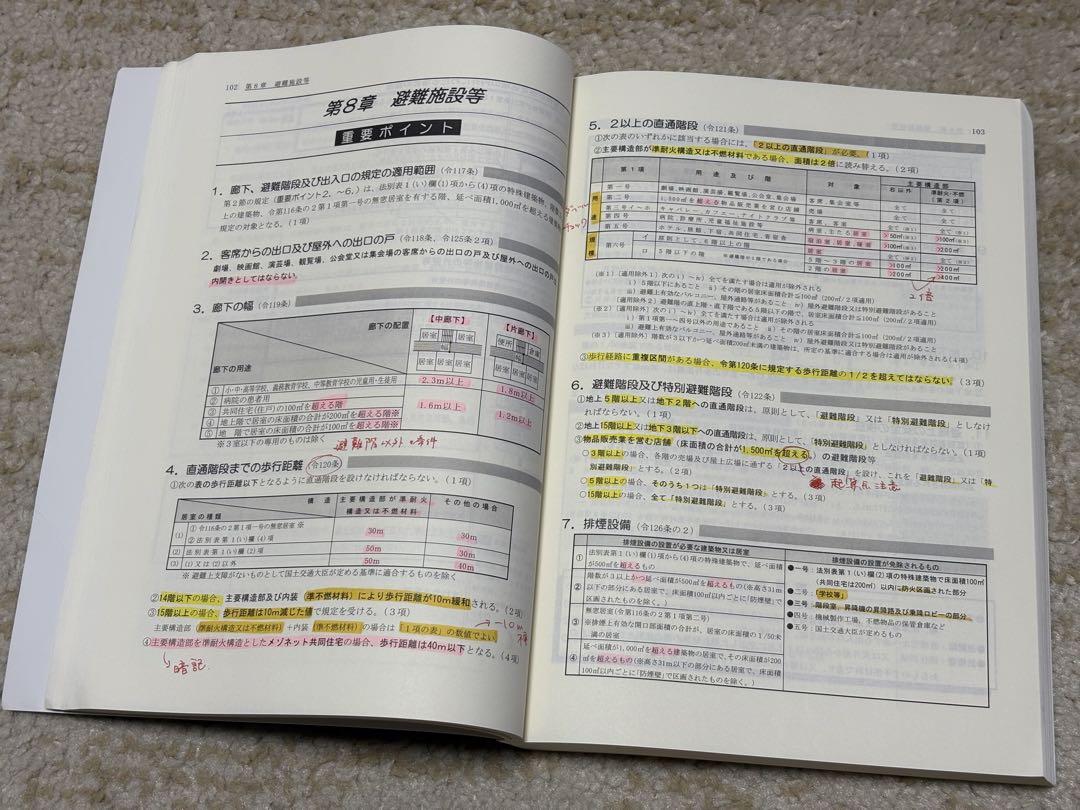 102 第8章 避難施設等
第8章 避難施設等
重要ポイント
1. 廊下、避難階段及び出入口の規定の適用範囲（令117条）
第2節の規定（重要ポイント2．～6．）は、法別表1（い）欄(1)項から(4)項の特殊建築物、階数
上の建築物、令第116条の2第1項第一号の無窓居室を有する階、延べ面積1,000㎡を超える建築
規定の対象となる。（1項）
2. 客席からの出口及び屋外への出口の戸（令118条、令125条2項）
劇場、映画館、演芸場、観覧場、公会堂又は集会場の客席からの出口の戸及び屋外への出口の戸
内開きとしてはならない。
3. 廊下の幅（令119条）
廊下の配置
【中廊下】
【片廊下】
居室 居室
便所 倉庫
居室 居室 居室
居室 居室 居室
廊下の用途
① 小・中・高等学校、義務教育学校、中等教育学校の児童用・生徒用 2.3m以上 1.8m以上
② 病院の患者用
③ 共同住宅(住戸)の100㎡を超える階
④ 地上階で居室の床面積の合計が200㎡を超える階※
⑤ 地 階で居室の床面積の合計が100㎡を超える階※
1.6m以上 1.2m以上
※3室以下の専用のものは除く
避難階以外の条件
4. 直通階段までの歩行距離（令120条）
①次の表の歩行距離以下となるように直通階段を設けなければならない。（1項）
構 造 主要構造部が準耐火 その他の場合
居室の種類 構造又は不燃材料
(1) ①令116条の2第1項一号の無窓居室 ※
②法別表第1(い)欄(4)項 30m 30m
(2) 法別表第1(い)欄(2)項 50m 30m
(3) (1)又は(2)以外 50m 40m
※ 避難上支障がないものとして国土交通大臣が定める基準に適合するものを除く
②14階以下の場合、主要構造部及び内装（準不燃材料）により歩行距離が10m緩和される。（2項）
③15階以上の場合、歩行距離は10m減じた値で規定を受ける。（3項）
主要構造部（準耐火構造又は不燃材料）＋内装（準不燃材料）の場合は「1項の表」の数値でよい
→ -10m
④主要構造部を準耐火構造としたメゾネット共同住宅の場合、歩行距離は40m以下となる。（4項）
暗記
103
5. 2以上の直通階段（令121条）
①次の表のいずれかに該当する場合には、「2以上の直通階段」が必要。（1項）
②主要構造部が準耐火構造又は不燃材料である場合、面積は2倍に読み替える。（2項）
第1項 用途及び階 対象 主要構造部
右以外 準耐火・不燃（第2項）
用途
第一号 劇場、映画館、演芸場、観覧場、公会堂、集会場 客席、集会室等 全て 全て
第二号 1,500㎡を超える物品販売業を営む店舗 売場 全て 全て
第三号イ～ホ キャバレー、カフェー、ナイトクラブ等 客席、客室 全て 全て
第四号 病院、診療所、児童福祉施設等 病室、主たる居室 >50㎡(※1) >100㎡(※1)
第五号 ホテル、旅館、下宿、共同住宅、寄宿舎 宿泊室、居室、寝室 >100㎡(※3) >200㎡(※3)
規模
第六号 イ 原則として、6階以上の階 居室 全て(※2) 全て(※2)
ロ 5階以下の階 5階～3階の居室 >100㎡ >200㎡
2階の居室 >200㎡ >400㎡
2倍
（※1）［適用除外1］次のi）～iv）全てを満たす場合は適用が除外される
i）5階以下にあること ii）その階の居室床面積合計≦100㎡（200㎡/2項適用）
iii）避難上有効なバルコニー、屋外通路等があること iv）屋外避難階段又は特別避難階段があること
［適用除外2］避難階の直上階・直下階である5階以下の階で、居室床面積合計≦100㎡（200㎡/2項適用）
（※2）［適用除外］次のi）～iv）全てを満たす場合は適用が除外される
i）第1項第一～四号以外の用途であること ii）その階の居室床面積合計≦100㎡（200㎡/2項適用）
iii）避難上有効なバルコニー、屋外通路等があること iv）屋外避難階段又は特別避難階段があること
（※3）［適用除外］階数が3以下かつ延べ面積200㎡未満の建築物は、所定の基準に適合する場合は適用が除外される(4項)
③歩行経路に重複区間がある場合、令第120条に規定する歩行距離の1/2を超えてはならない。（3項）
6. 避難階段及び特別避難階段（令122条）
①地上5階以上又は地下2階への直通階段は、原則として、「避難階段」又は「特別避難階段」としなけ
ればならない。（1項）
②地上15階以上又は地下3階以下への直通階段は、原則として、「特別避難階段」としなければならない。（1項）
③物品販売業を営む店舗（床面積の合計が1,500㎡を超える）の避難階段等
○3階以上の場合、各階の売場及び屋上広場に通ずる「2以上の直通階段」を設け、これを「避難階段」又は「特
別避難階段」とする。（2項）
○5階以上の場合、そのうち1つは「特別避難階段」とする。（3項）
○15階以上の場合、全て「特別避難階段」とする。（3項）
7. 排煙設備（令126条の2）
排煙設備の設置が必要な建築物又は居室
① 法別表第1（い）欄(1)項から(4)項の特殊建築物で、延べ面積
が500㎡を超えるもの
② 階数が3以上かつ延べ面積が500㎡を超えるもの（※高さ31m以
下の部分にある居室で、床面積100㎡以内ごとに「防煙壁」で
区画されたものを除く。）
③ 無窓居室（令第116条の2第1項第二号）
※排煙上有効な開口部面積の合計が、居室の床面積の1/50未
満の居室
④ 延べ面積が1,000㎡を超える建築物の居室で、その床面積が200
㎡を超えるもの（※高さ31m以下の部分にある居室で、床面積
100㎡以内ごとに「防煙壁」で区画されたものを除く。）
排煙設備の設置が免除されるもの
●一号：法別表第1（い）欄(2)項の特殊建築物で床面積100㎡
（共同住宅は200㎡）以内に防火区画された部分
●二号：学校等
●三号：階段室、昇降機の昇降路及び乗降ロビーの部分
●四号：機械製作工場、不燃物品の保管倉庫など
●五号：国土交通大臣が定めるもの